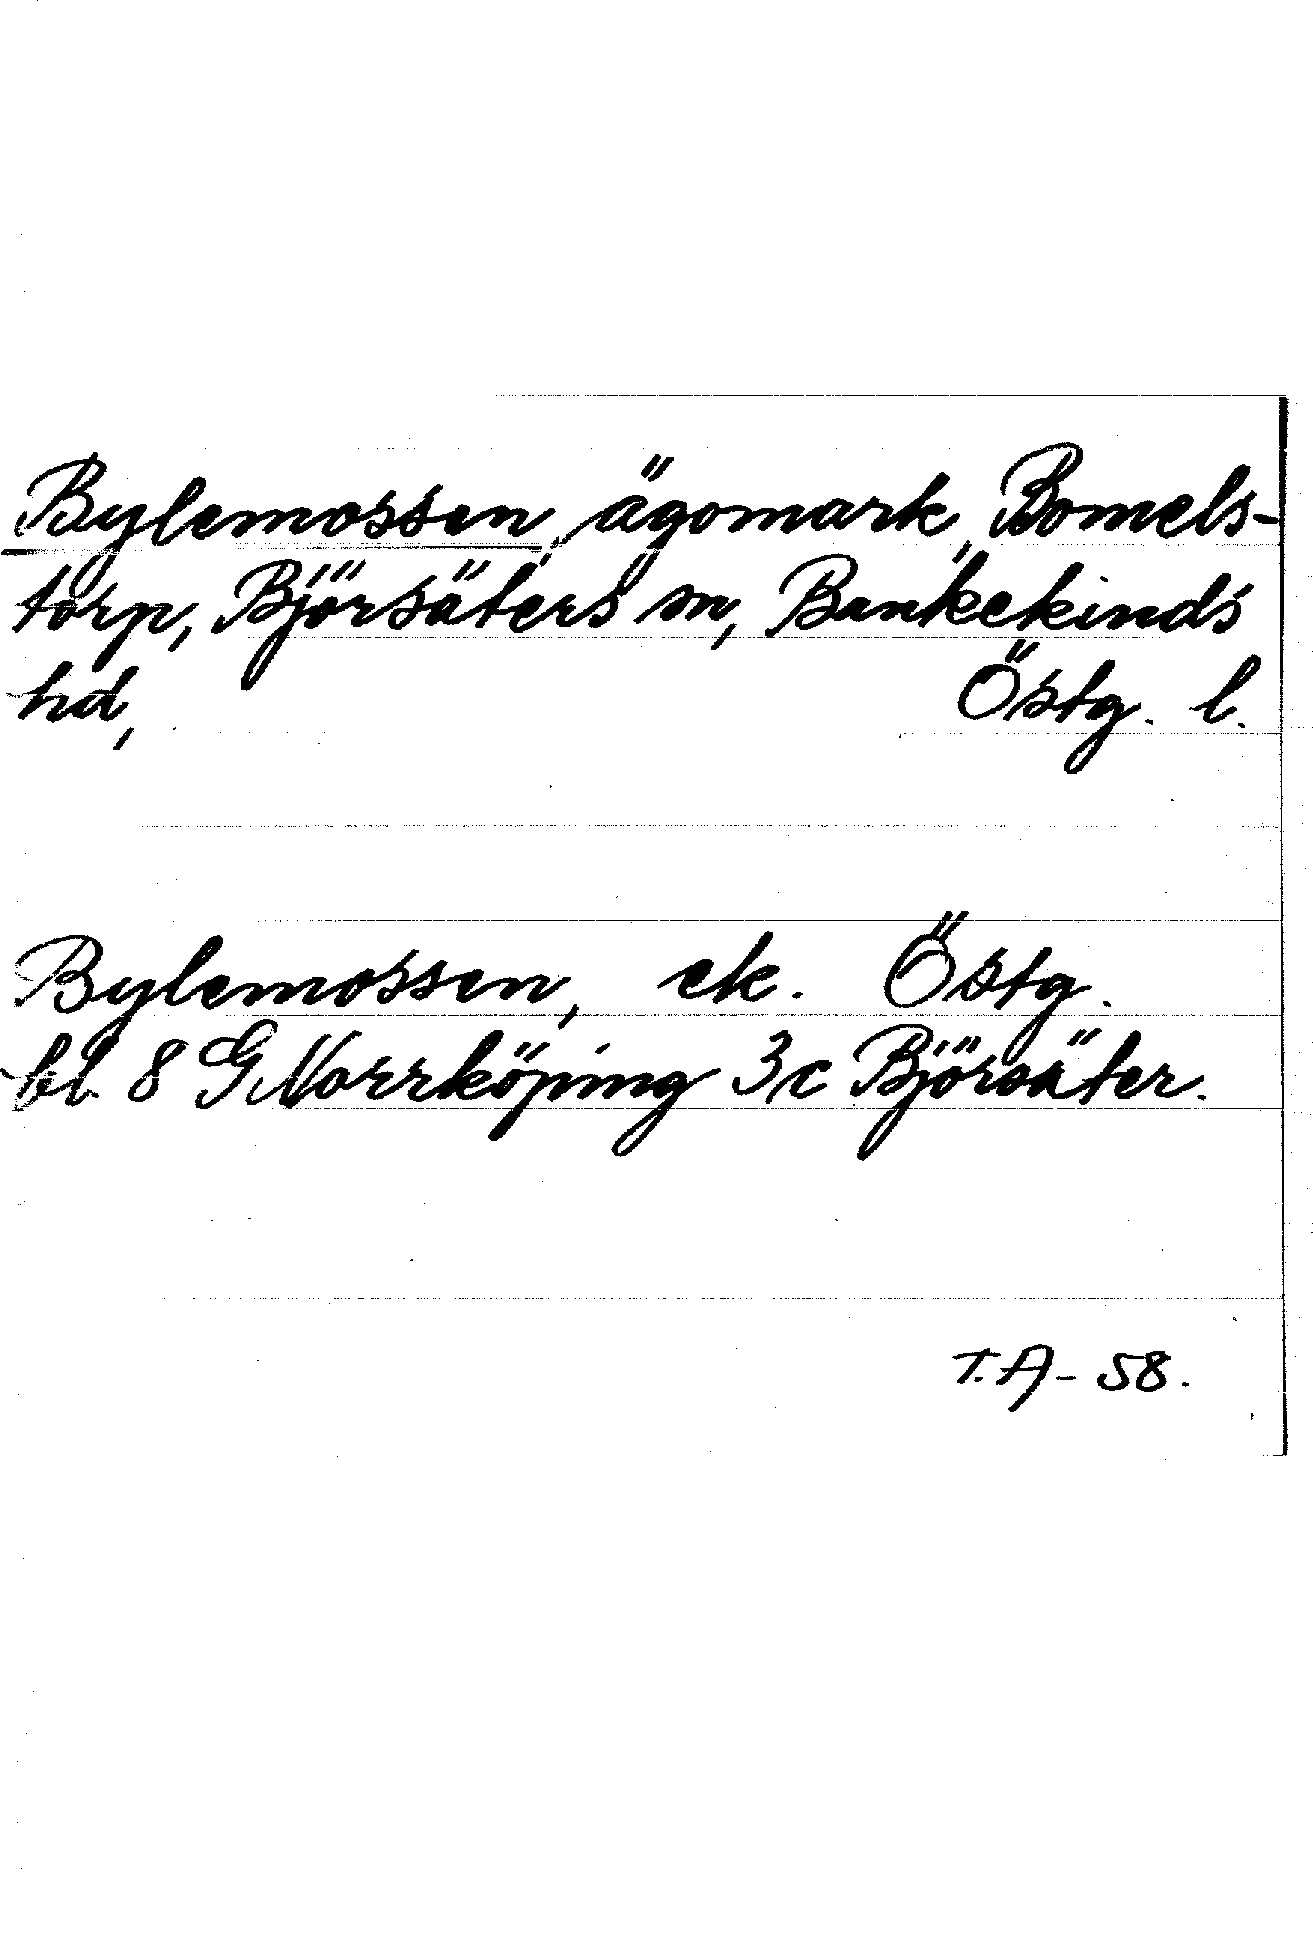 Bylemossen, ägomark, Bomels-
torp, Björsäters sn, Bankekinds
hd, Östg. l.
Bylemossen, ek. Östg.
bl. 8 G Norrköping 3c Björsäter.
T.A - 58.